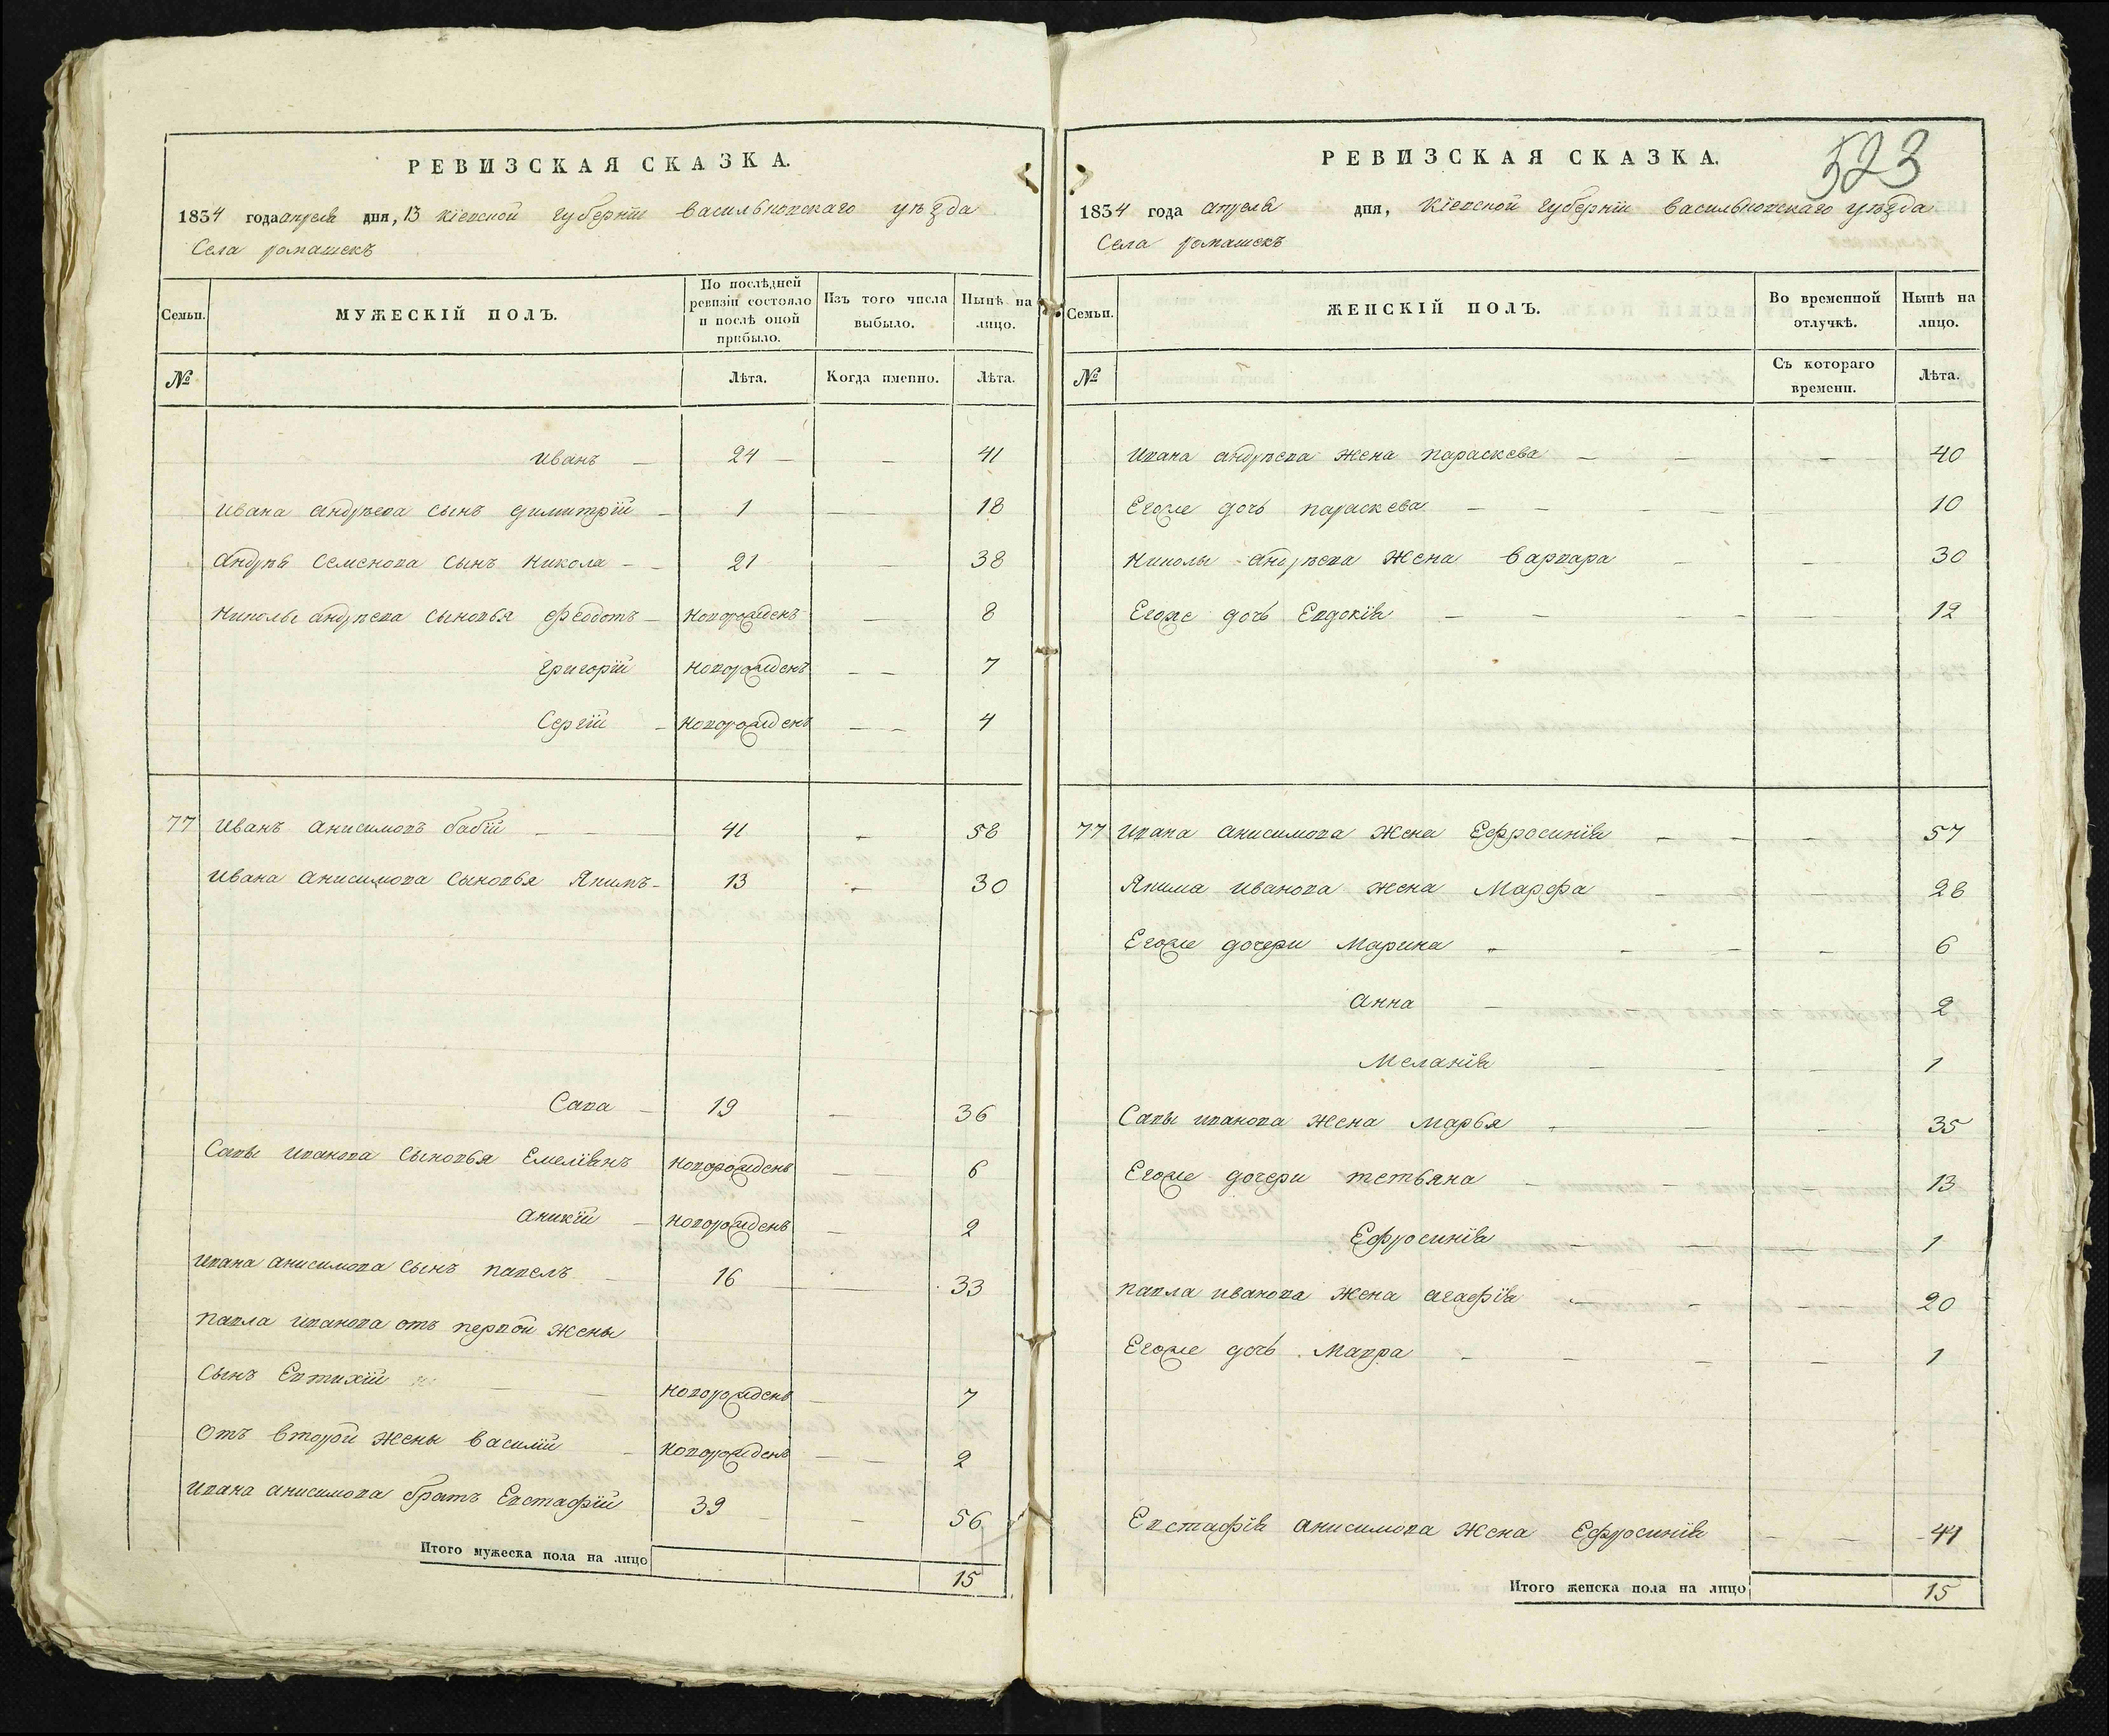 РЕВИЗСКАЯ СКАЗКА.
1834 года апреля дня, 13 Кіевской губерніи Васильковскаго уѣзда
Села Ромашекъ
Семьи.
МУЖЕСКІЙ ПОЛЪ.
По послѣдней ревизіи состояло и послѣ оной прибыло.
Изъ того числа выбыло.
Нынѣ на лицо.
№
Лѣта.
Когда именно.
Лѣта.
Иванъ — 24 — — 41
Ивана Андрѣева сынъ Димитрій — 1 — — 18
Андрѣя Семенова сынъ Никола - - 21 — 38
Николы Андрѣева сыновья Феодотъ — новорожденъ — 8
Григорій новорожденъ — — 7
Сергій — новорожденъ — — 4
77 Иванъ Анисимовъ Бабій — — 41 — 58
Ивана Анисимова сыновья Якимъ - 13 — 30
Сава — 19 — 36
Савы Иванова сыновья Емеліянъ новорожденъ — — 6
Аникій — новорожденъ — 2
Ивана Анисимова сынъ Павелъ — 16 — — 33
Павла Иванова отъ первой жены
сынъ Евтихій — — новорожденъ — 7
Отъ второй жены Василій — новорожденъ — — 2
Ивана Анисимова братъ Евстафій 39 — — 56
Итого мужеска пола на лицо 15
523
РЕВИЗСКАЯ СКАЗКА.
1834 года апреля дня, Кіевской губерніи Васильковскаго уѣзда
Села Ромашекъ
Семьи.
ЖЕНСКІЙ ПОЛЪ.
Во временной отлучкѣ.
Нынѣ на лицо.
№
Съ котораго времени.
Лѣта.
Ивана Андрѣева жена Параскева — — — 40
Егоже дочь Параскева — — — — 10
Николы Андрѣева жена Варвара — — 30
Егоже дочь Евдокія — — — — — 12
77 Ивана Анисимова жена Ефросинія — — — — 57
Якима Иванова жена Марфа — — — 28
Егоже дочери Марина — — — — 6
Анна — — — 2
Меланія — — — 1
Савы Иванова жена Марья — — — 35
Егоже дочери Тетьяна — — — — 13
Ефросинія — — — — 1
Павла Иванова жена Агафія — — — — 20
Егоже дочь Мавра — — — — 1
Евстафія Анисимова жена Ефросинія — — 41
Итого женска пола на лицо 15